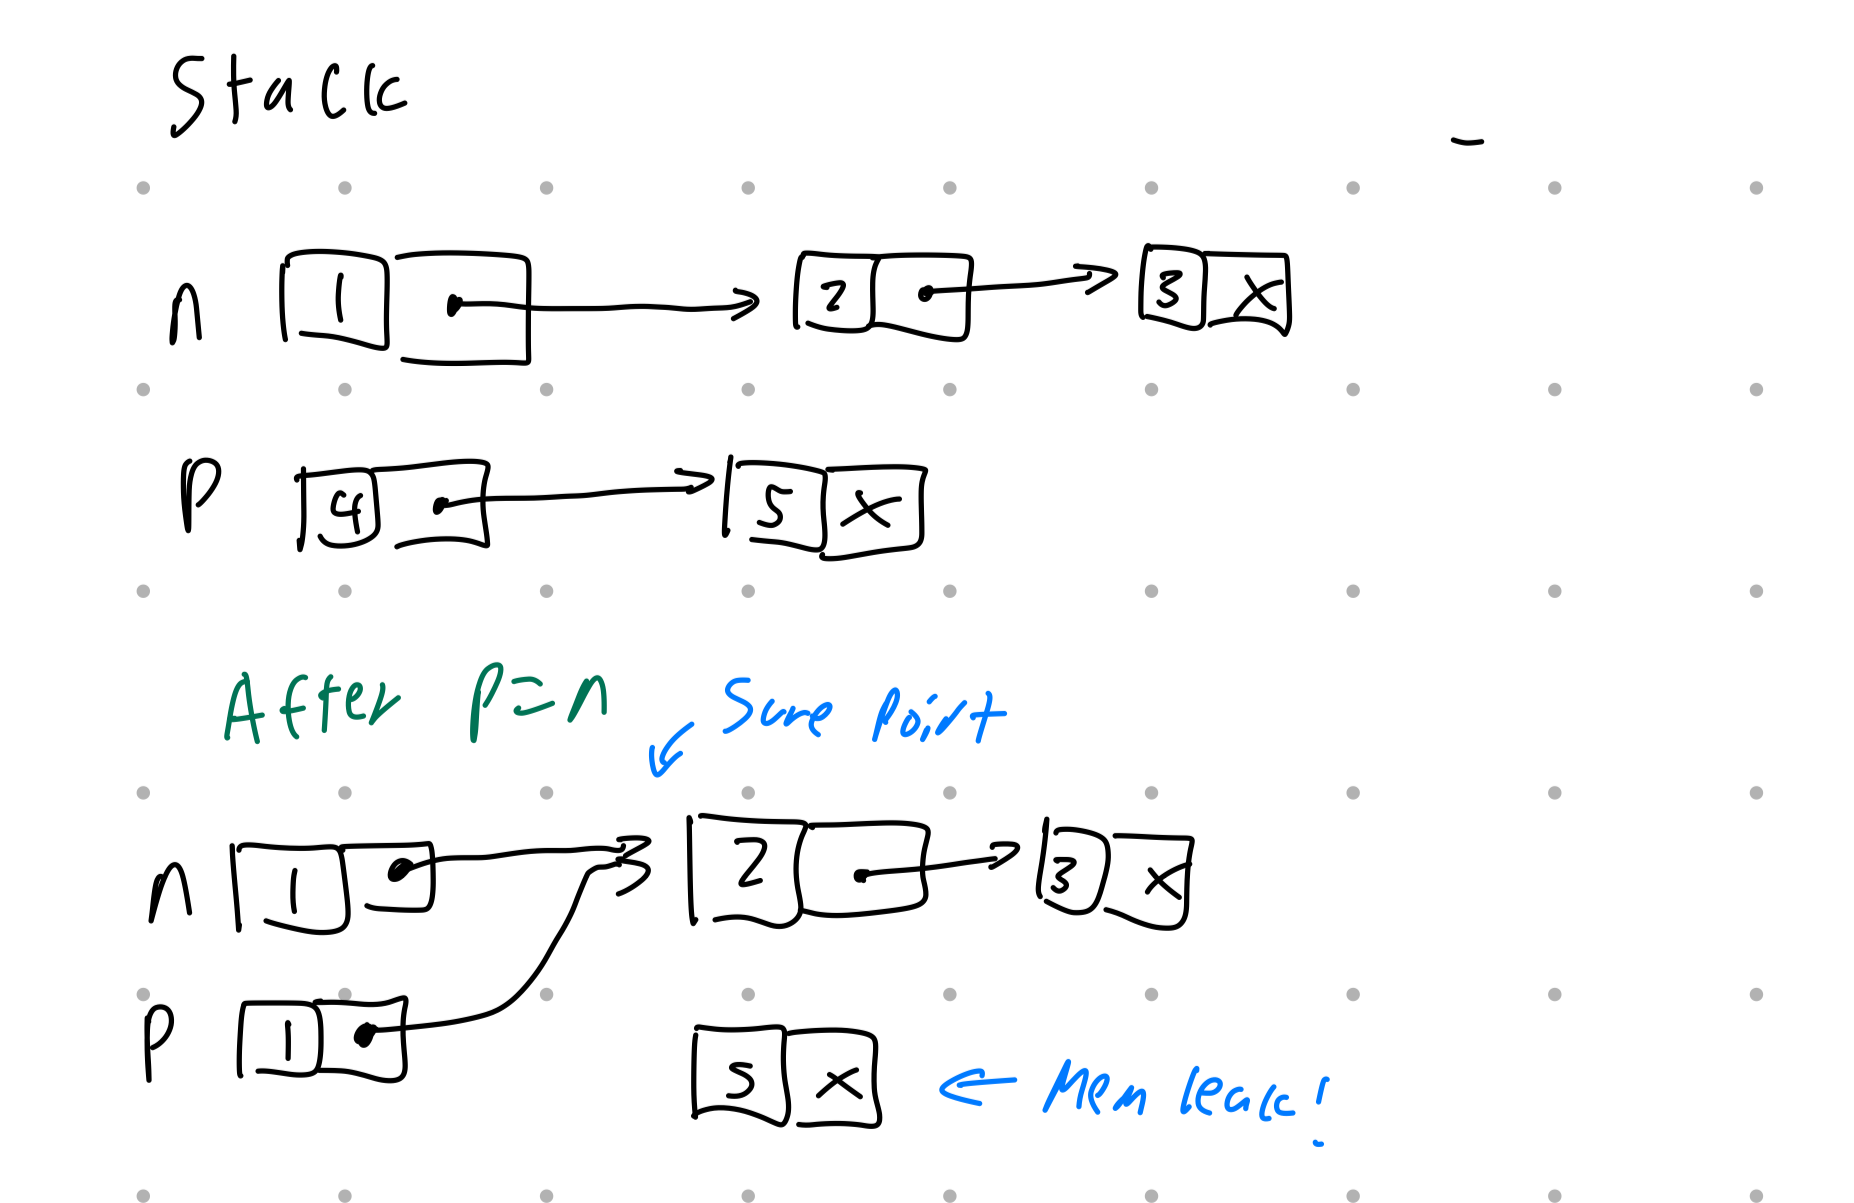 Stack
n 1 2 3 X
p 4 5 X
After p=n
Same point
n 1 2 3 X
p 1
5 X ← Mem leak!